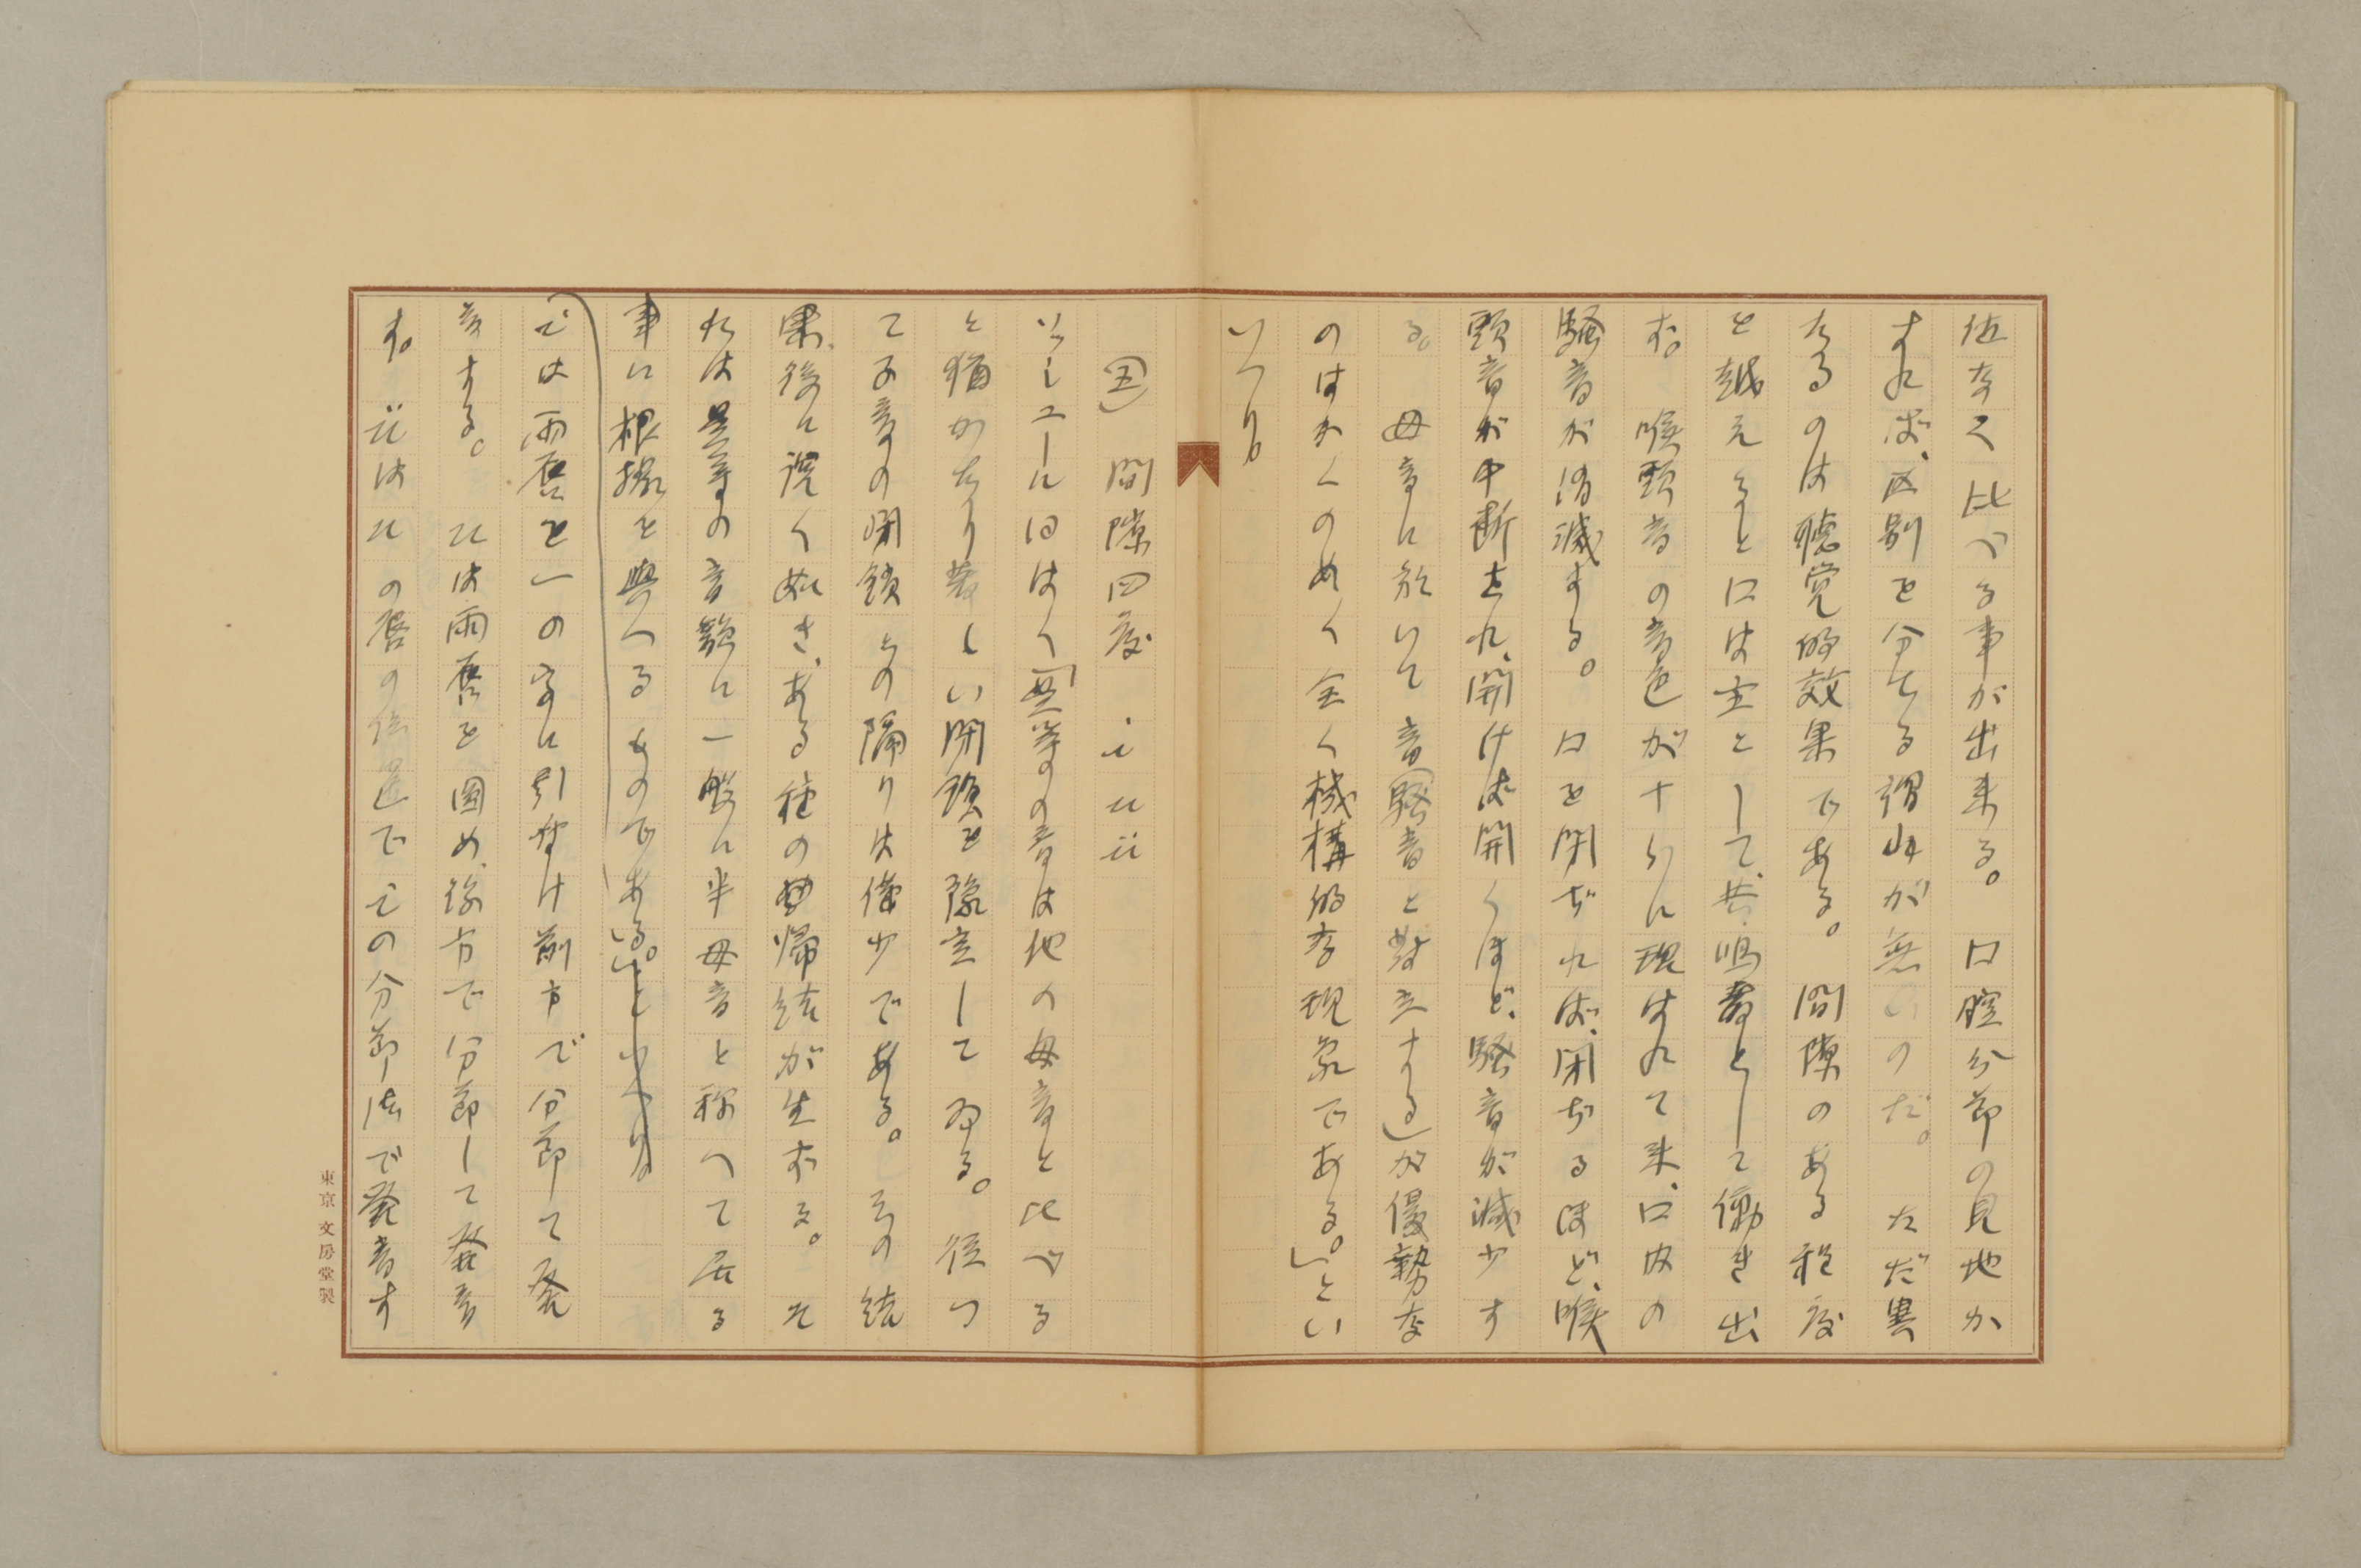 位なく比べる事が出来る。口腔分節の見地か
すれば、区別を分てる謂は無いのだ。ただ異
なるのは聴覚的効果である。間隙のある程度
を越えると口は主として、共鳴器として働き出
す。喉頭音の音色が十分に現はれて来、口内の
騒音が消滅する。口を閉ぢれば、閉ぢるほど、喉
頭音が中断され、開けば開くほど、騒音が減少す
る。母音に於いて音(騒音と対立する)が優勢な
のはかくのめく全く機構的な現象である。」とい
いへり。
(五) 間隙四度 i u ü
ソシユールは曰はく「此等の音は他の母音と比べる
と猶かなり著しい閉鎖を豫定してゐる。従つ
て子音の閉鎖との隔りは僅少である。その結
果、後に説く如き、ある種の帰結が生ずる。そ
れは是等の音韻に一般に半母音と称へて居る
事に根拠を與へるものである。」といへり
iは両唇を一の字に引なけ前方で分節て発
音する。uは両唇を円め、後方で分節して発音
す。üはuの唇の位置でiの分節法で発音す
東京 文房堂製